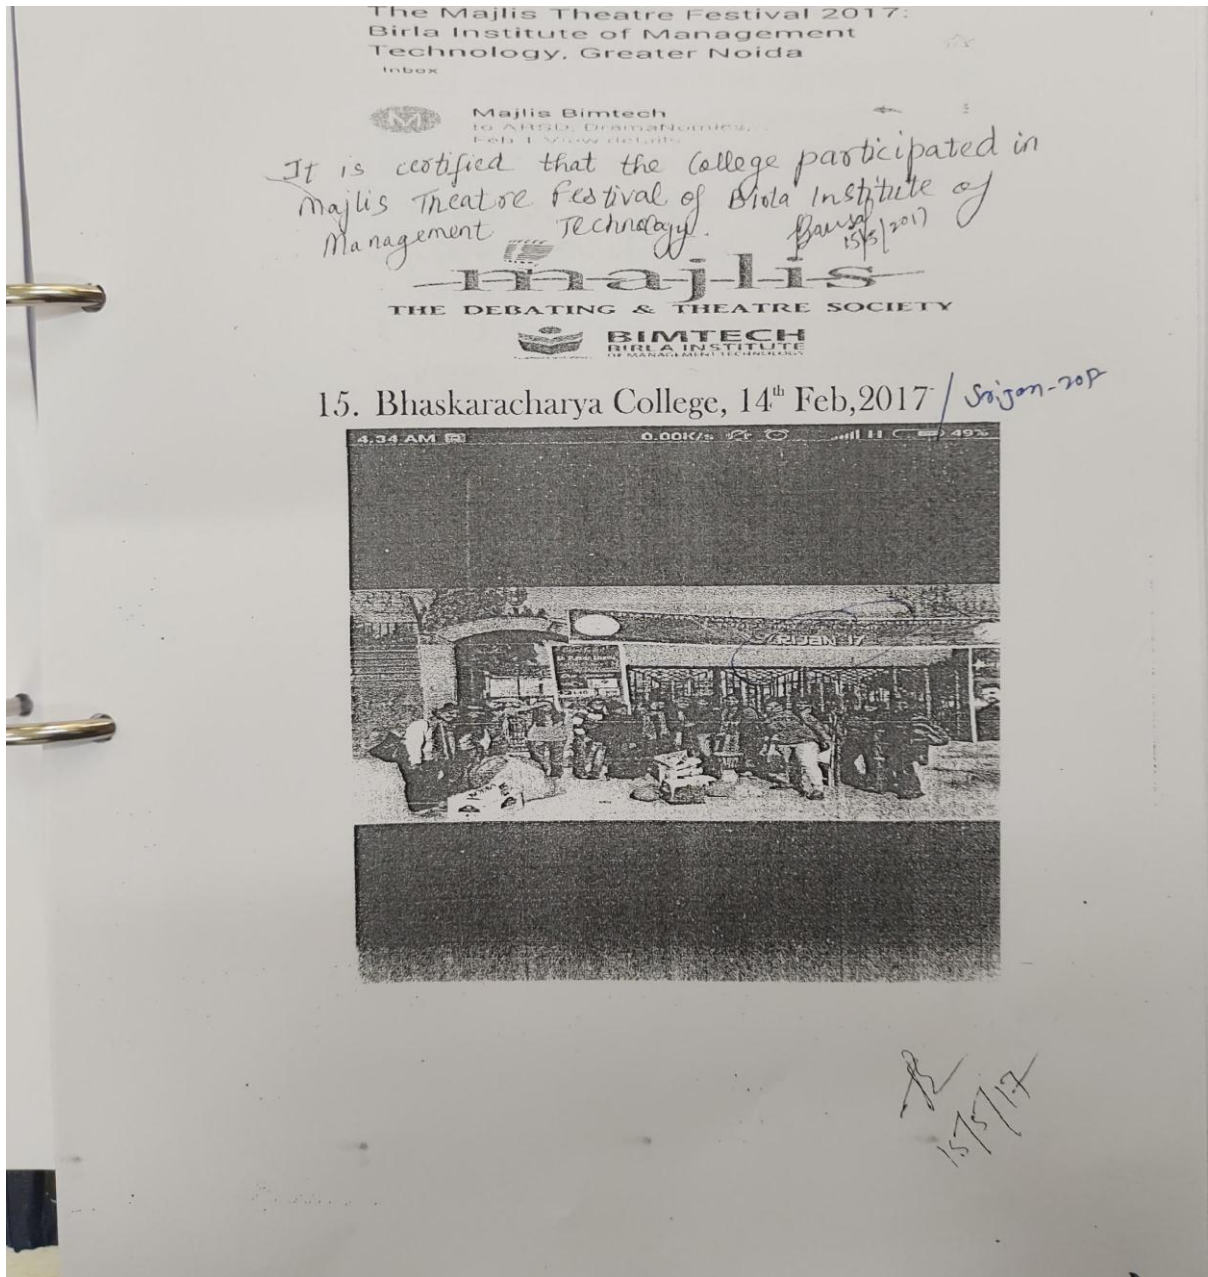 The Majlis Theatre Festival 2017:
Birla Institute of Management
Technology, Greater Noida
Inbox
M
Majlis Bimtech
to ARSD, DramaNomics,
Feb 1 View details
It is certified that the College participated in
Majlis Theatre Festival of Birla Institute of
Management Technology.
15/5/2017
majlis
THE DEBATING & THEATRE SOCIETY
BIMTECH
BIRLA INSTITUTE
OF MANAGEMENT TECHNOLOGY
15. Bhaskaracharya College, 14th Feb,2017 /
4.34 AM 0.00K/s H 49%
SRIJAN 17
15/5/17